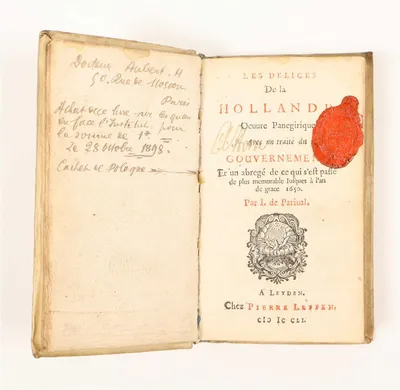 Docteur Aubert. H
50. Rue de Moscou
Paris
Acheté ce livre sur les quais
en face l'Institut pour
la somme de 1f
le 28 Octobre 1898.
Cachet de Pologne
LES DELICES
De la
HOLLANDE
Oeuure Panegirique
Avec un traité du
GOUVERNEMENT
Et un abregé de ce qui s'est passé
de plus memorable Iusques à l'an
de grace 1650.
Par I. de Pariual.
A LEYDEN.
Chez PIERRE LEFFEN,
CIↃ IↃ CLI.